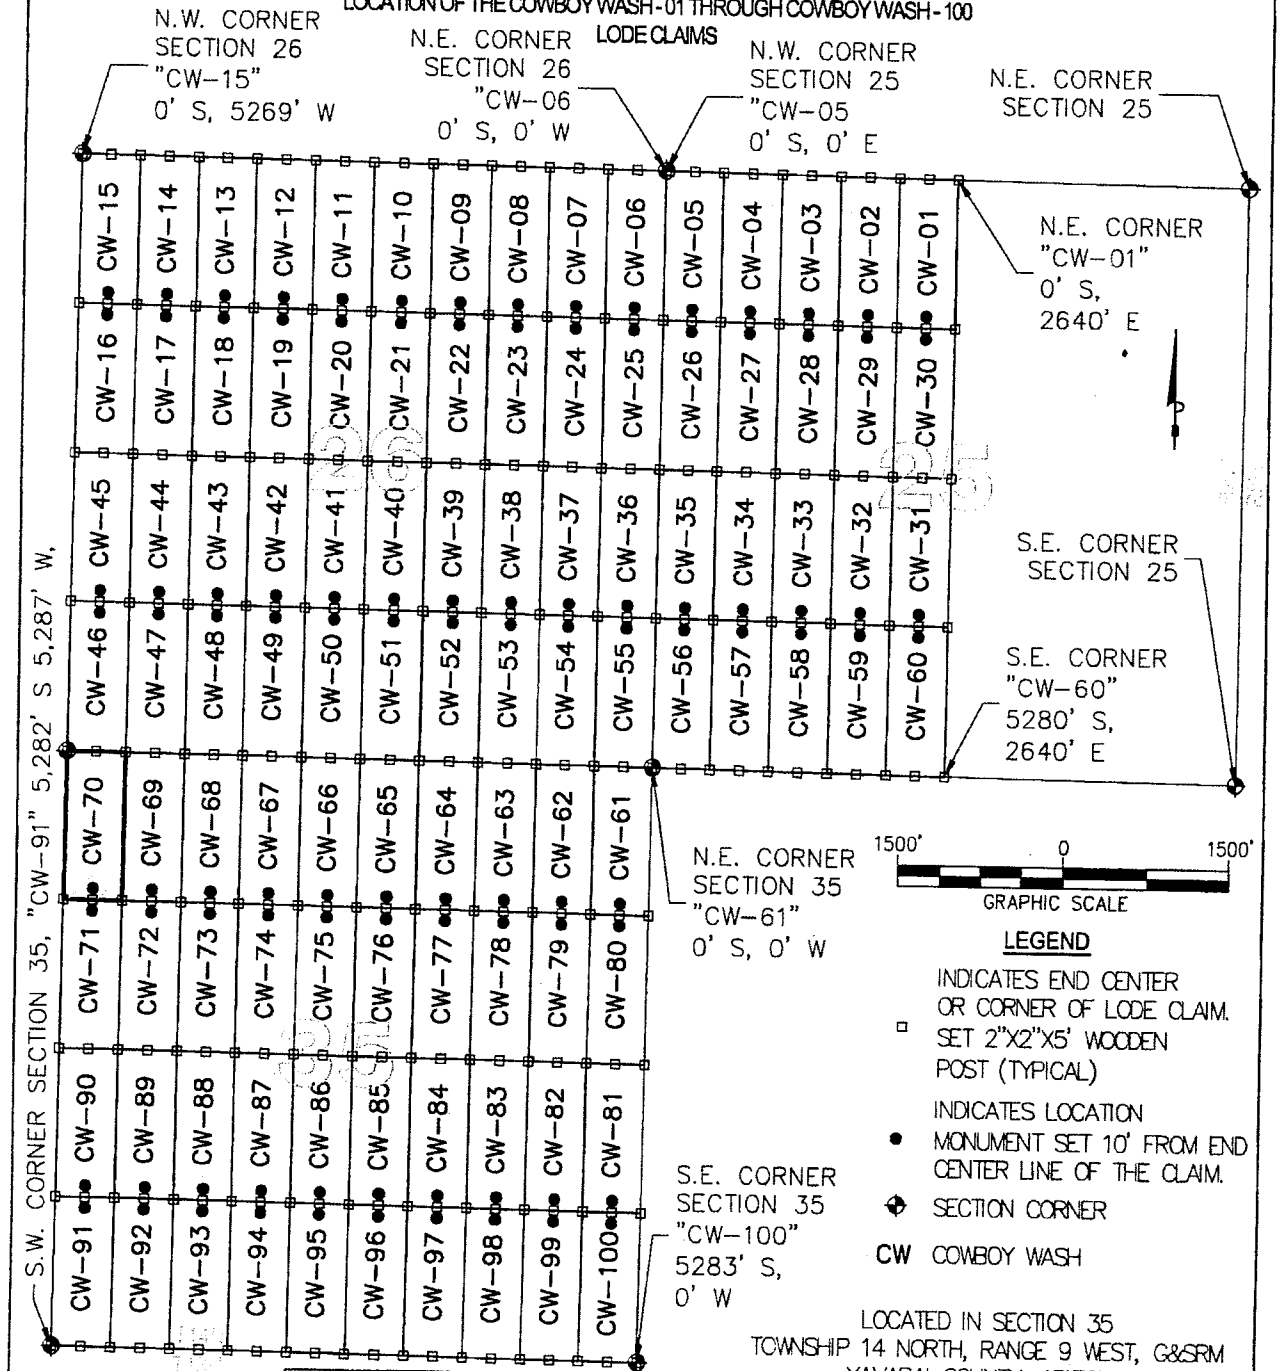 LOCATION OF THE COWBOY WASH-01 THROUGH COWBOY WASH-100
LODE CLAIMS
N.W. CORNER
SECTION 26
"CW-15"
0' S, 5269' W
N.E. CORNER
SECTION 26
"CW-06
0' S, 0' W
N.W. CORNER
SECTION 25
"CW-05
0' S, 0' E
N.E. CORNER
SECTION 25
CW-15 CW-14 CW-13 CW-12 CW-11 CW-10 CW-09 CW-08 CW-07 CW-06 CW-05 CW-04 CW-03 CW-02 CW-01
N.E. CORNER
"CW-01"
0' S,
2640' E
CW-16 CW-17 CW-18 CW-19 CW-20 CW-21 CW-22 CW-23 CW-24 CW-25 CW-26 CW-27 CW-28 CW-29 CW-30
26
25
CW-45 CW-44 CW-43 CW-42 CW-41 CW-40 CW-39 CW-38 CW-37 CW-36 CW-35 CW-34 CW-33 CW-32 CW-31
S.E. CORNER
SECTION 25
CW-46 CW-47 CW-48 CW-49 CW-50 CW-51 CW-52 CW-53 CW-54 CW-55 CW-56 CW-57 CW-58 CW-59 CW-60
S.E. CORNER
"CW-60"
5280' S,
2640' E
CW-70 CW-69 CW-68 CW-67 CW-66 CW-65 CW-64 CW-63 CW-62 CW-61
N.E. CORNER
SECTION 35
"CW-61"
0' S, 0' W
CW-71 CW-72 CW-73 CW-74 CW-75 CW-76 CW-77 CW-78 CW-79 CW-80
35
CW-90 CW-89 CW-88 CW-87 CW-86 CW-85 CW-84 CW-83 CW-82 CW-81
CW-91 CW-92 CW-93 CW-94 CW-95 CW-96 CW-97 CW-98 CW-99 CW-100
S.W. CORNER SECTION 35, "CW-91" 5,282' S 5,287' W,
S.E. CORNER
SECTION 35
"CW-100"
5283' S,
0' W
1500' 0 1500'
GRAPHIC SCALE
LEGEND
INDICATES END CENTER
OR CORNER OF LODE CLAIM.
SET 2"X2"X5' WOODEN
POST (TYPICAL)
INDICATES LOCATION
MONUMENT SET 10' FROM END
CENTER LINE OF THE CLAIM.
SECTION CORNER
CW COWBOY WASH
LOCATED IN SECTION 35
TOWNSHIP 14 NORTH, RANGE 9 WEST, G&SRM